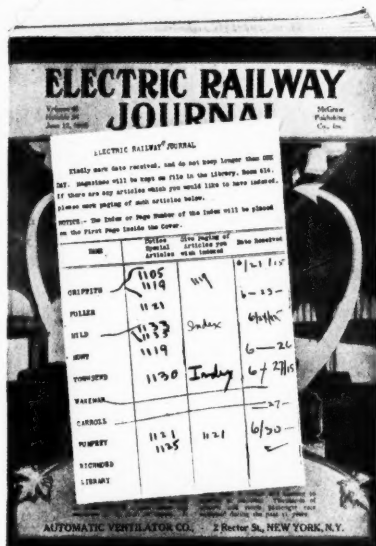 ELECTRIC RAILWAY
JOURNAL
McGraw
Publishing
Co., Inc.
ELECTRIC RAILWAY JOURNAL
Kindly mark date received, and do not keep longer than ONE
DAY. Magazines will be kept on file in the Library, Room 614.
If there are any articles which you would like to have indexed,
please mark paging of such articles below.
NOTICE:- The Index or Page Number of the Index will be placed
on the First Page Inside the Cover.
NAME Notice Special Articles Give Paging of Articles you wish indexed Date Received
GRIFFITH 1105 1119 1119 6/21/15
FULLER 1121 6-23-
HILD 1133 1135 Index 6/24/15
HUNT 1119 6-26
TOWNSEND 1130 Index 6-27/15
WAKEMAN
CARROLL -27-
PUMPHEY 1121 1125 1121 6/30-
RICHMOND
LIBRARY
AUTOMATIC VENTILATOR CO., - 2 Rector St., NEW YORK, N.Y.